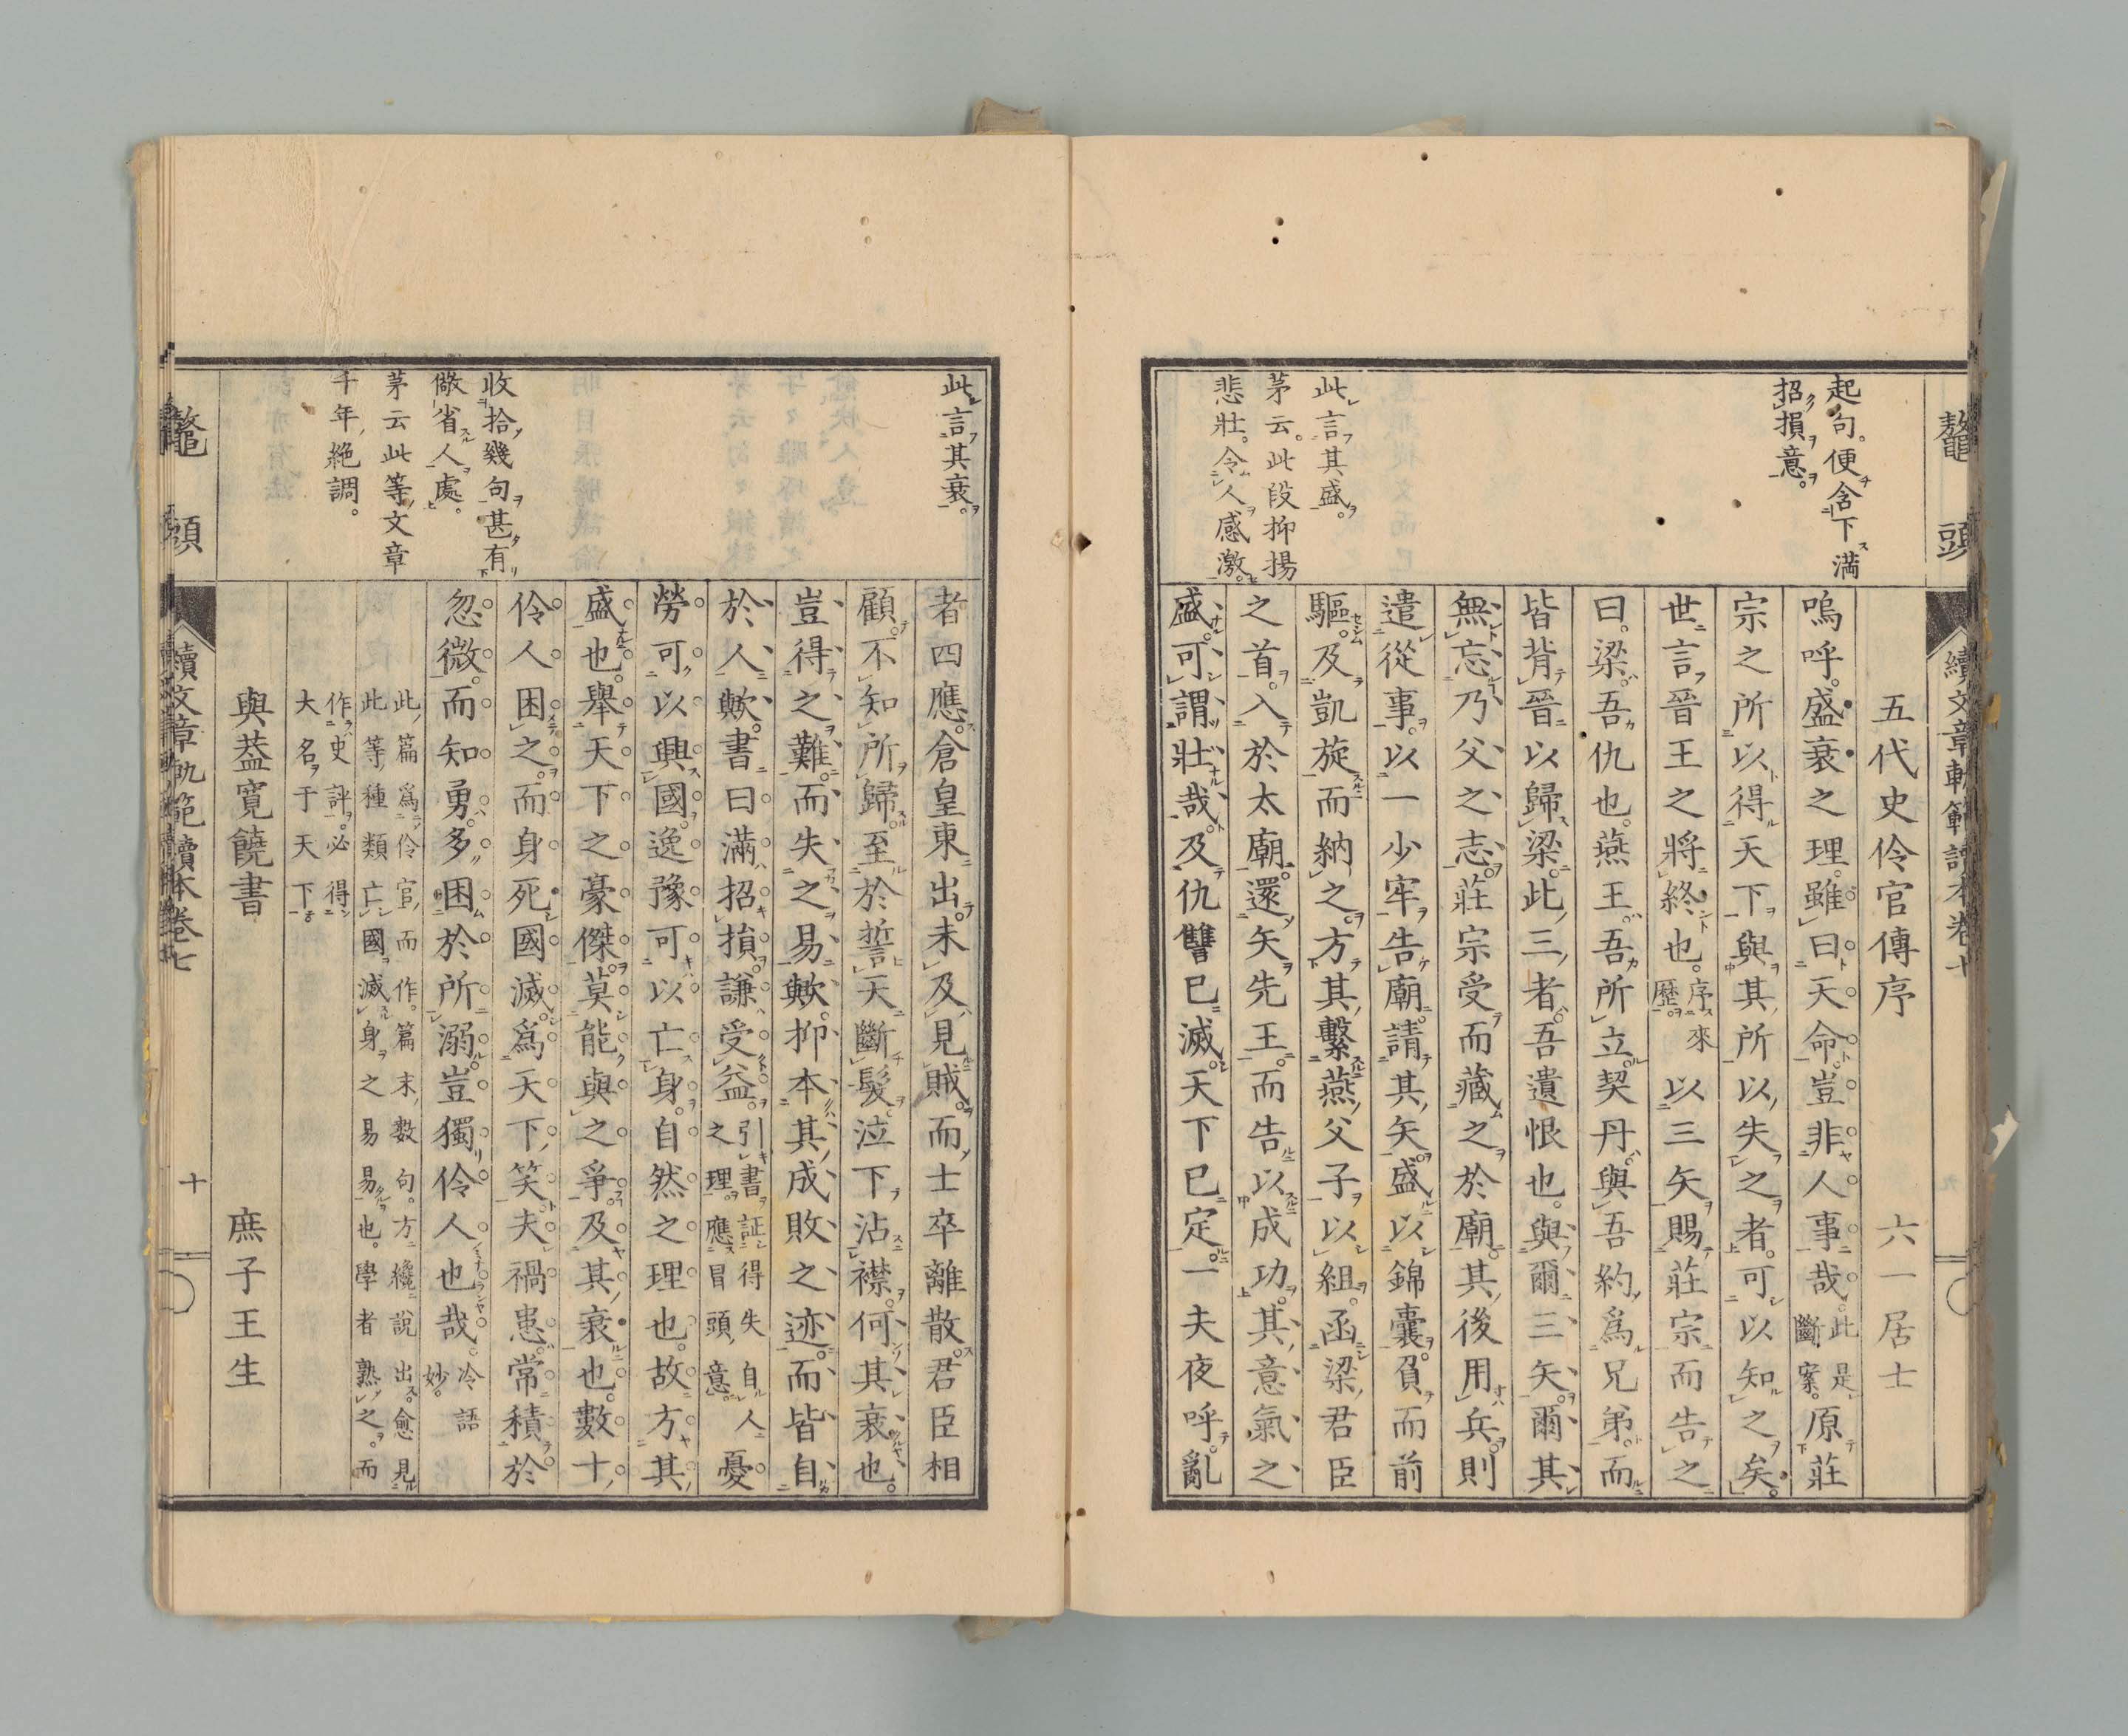 鼇頭
續文章軌範讀本卷七
起句。便含下滿
招損意。
此言其盛。
茅云。此段抑揚
悲壯。令人感激。
五代史伶官傳序 六一居士
嗚呼。盛衰之理。雖曰天命。豈非人事哉。此是斷案。原莊
宗之所以得天下。與其所以失之者。可以知之矣。
世言晉王之將終也。序來歷。以三矢賜莊宗而告之
曰。梁吾仇也。燕王吾所立。契丹與吾約爲兄弟。而
皆背晉以歸梁。此三者吾遺恨也。與爾三矢。爾其
無忘乃父之志。莊宗受而藏之於廟。其後用兵。則
遣從事。以一少牢告廟。請其矢。盛以錦囊。負而前
驅。及凱旋而納之。方其繫燕父子以組。函梁君臣
之首。入於太廟。還矢先王。而告以成功。其意氣之
盛。可謂壯哉。及仇讐已滅。天下已定。一夫夜呼。亂
此言其衰。
收拾幾句。甚有
儆省人處。
茅云此等文章
千年絶調。
者四應。倉皇東出。未及見賊。而士卒離散。君臣相
顧。不知所歸。至於誓天斷髮。泣下沾襟。何其衰也。
豈得之難。而失之易歟。抑本其成敗之迹。而皆自
於人歟。書曰滿招損。謙受益。引書証得失自人之理。應冒頭意。憂
勞可以興國。逸豫可以亡身。自然之理也。故方其
盛也。舉天下之豪傑。莫能與之爭。及其衰也。數十
伶人困之。而身死國滅。爲天下笑。夫禍患常積於
忽微。而知勇多困於所溺。豈獨伶人也哉。冷語妙。
此篇爲伶官而作。篇末數句。方纔說出。愈見
此等種類亡國滅身之易易也。學者熟之。而
作史評。必得
大名于天下。
與蓋寬饒書 庶子王生
鼇頭
續文章軌範讀本卷七
十